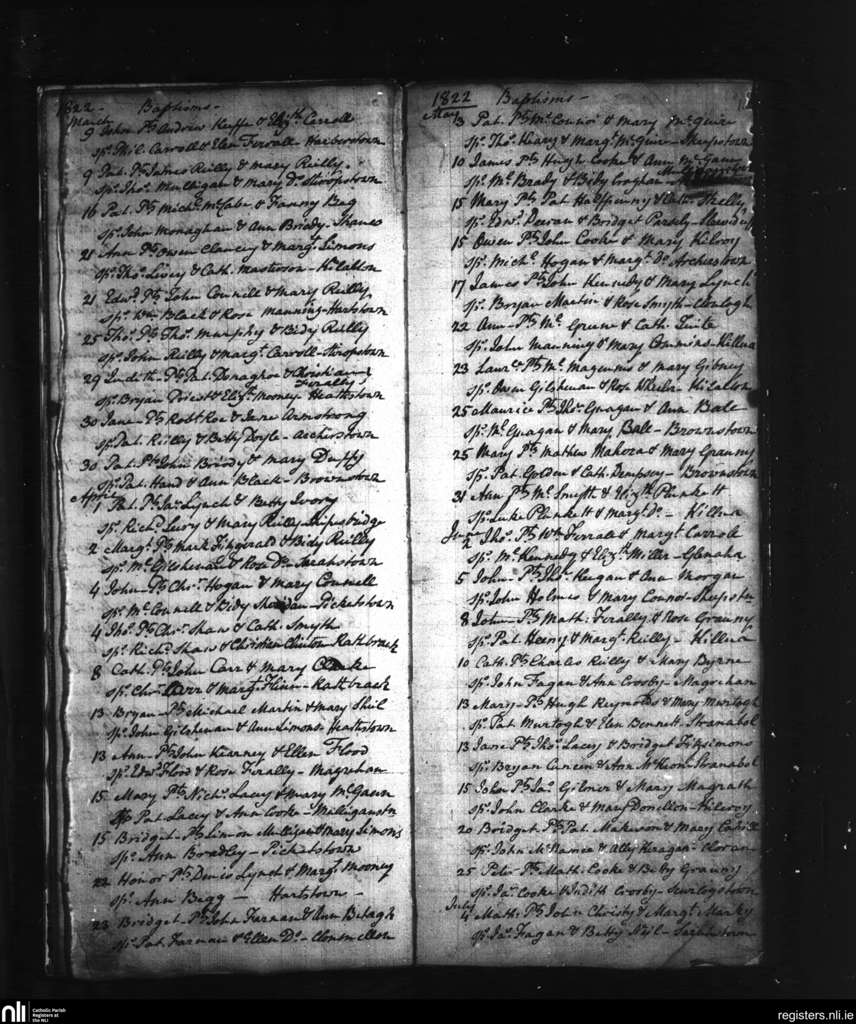 1822 - Baptisms -
March
9 John Ps Andrew Keeffe & Elizth. Carroll
Sps. Phil. Carroll & Elen Ferrall - Harberstown
9 Pat. Ps James Reilly & Mary Reilly.
Sps. Thos. Mulligan & Mary Do. Stiropstown
16 Pat. Ps Michl. McCabe & Franny Beg
Sps. John Monaghan & Ann Briody - Shanco
21 Ann Ps Owen Clancey & Margt. Simons
Sps. Thos. Livey & Cath. Masterson - Kilallon
21 Edwd. Ps John Connell & Mary Reilly
Sps. Wm. Black & Rose Manning - Hartstown
25 Thos. Ps Thos. Murphy & Bidy Reilly
Sps. John Reilly & Margt. Carroll - Stiropstown
29 Judith - Ps Pat. Donaghoe & Christian Firally
Sps. Bryan Priest & Elizth. Mooney Heathstown
30 Jane - Ps Robt Roe & Jane Armstrong
Sps. Pat. Reilly & Betty Doyle - Archerstown
30 Pat. Ps John Briody & Mary Duffy
Sps. Pat. Hand & Ann Black - Brownstown
April
1 Pat. Ps Jas. Lynch & Betty Ivory
Sps. Richd. Ivory & Mary Reilly
2 Margt. Ps Mark Fitzgerald & Bidy Reilly
Sps. Ml. Gilshenan & Rose Do.
4 John - Ps Chrs. Hogan & Mary Connell
Sps. Ml. Connell & Bidy Sheridan - Picketstown
4 Thos. Ps Chrs. Shaw & Cath. Smyth
Sps. Richd. Shaw & Christian Clinton - Rathbrack
8 Cath. Ps John Carr & Mary Clarke
Sps. Chrs. Carr & Margt. Flinn - Rathbrack
13 Bryan - Ps Michael Martin & Mary Shiel
Sps. John Gilshenan & Ann Simons - Heathstown
13 Ann - Ps John Kearney & Ellen Flood
Sps. Edwd Flood & Rose Firally - Magrehan
15 Mary Ps Nichs. Lacey & Mary McGawn
Sps. Pat Lacey & Ann Cooke - Mulliganstn
15 Bridget - Ps Simon Mulligan & Mary Simons
Sps. Ann Bradley - Picketstown
22 Honor Ps Denis Lynch & Margt. Mooney
Sps. Ann Begg - Hartstown -
23 Bridget - Ps John Farnan & Ann Betagh
Sps. Pat. Farnan & Ellen Do. - Clonmellon
1822 Baptisms -
May
3 Pat. Ps McConnor & Mary McGuire
Sps. Thos. Heary & Margt. McGuire - Sheepstown
10 James Ps Hugh Cooke & Ann McGawn
Sps. Ml. Brady & Bidy Coughan
15 Mary Ps Pat Halfpenny & Cath. Skelly
Sps. Edwd. Deeran & Bridget Parsely
15 Owen Ps John Cooke & Mary Kilroy
Sps. Michl. Hogan & Margt. Do. Archerstown
17 James Ps John Kennedy & Mary Lynch
Sps. Bryan Martin & Rose Smyth
22 Ann - Ps Ml. Green & Cath. Tuite
Sps. John Manning & Mary Commins - Killua
23 Laurce. Ps Ml. Magennis & Mary Gibney
Sps. Owen Gilshenan & Rose Wheelr. Kilallon
25 Maurice Ps Thos. Geagan & Ann Ball
Sps. Ml. Geagan & Mary Ball - Brownstown
25 Mary Ps Mathew Mahora & Mary Granny
Sps. Pat Golden & Cath. Dempsey - Brownstown
31 Ann Ps Ml. Smyth & Elizth Plunkett
Sps. Luke Plunkett & Margt. Do. - Killua
June
2 Thos. Ps Wm Ferrall & Margt Carroll
Sps. Ml. Kennedy & Elizth. Miller - Glenaha
5 John - Ps Thos. Keegan & Ann Morgan
Sps. John Holmes & Mary Connor - Sheepstn
8 John - Ps Math. Firally & Rose Granny
Sps. Pat. Heeny & Margt. Reilly - Killua
10 Cath. Ps Charles Reilly & Mary Byrne
Sps. John Fagan & Ann Crosby - Magrehan
13 Mary - Ps Hugh Reynolds & Mary Murtogh
Sps. Pat Murtogh & Elen Bennett - Stranabol
13 Jane Ps Thos. Lacey & Bridget Fitzsimons
Sps. Bryan Cuncen & Ann McKeon - Stranabol
15 John Ps Jas. Gilmer & Mary Magrath
Sps. John Clarke & Mary Donellon - Kilwoy
20 Bridget Ps Pat. Makeson & Mary
Sps. John McNamee & Ally Heagan - Cloran
25 Peter Ps Math. Cooke & Betty Granny
Sps. Jas. Cooke & Judith Crosby - Scurlogstown
July
4 Math. Ps John Christy & Margt. Markey
Sps. Jas. Fagan & Betty Neil
nli
Catholic Parish
Registers at
the NLI
registers.nli.ie